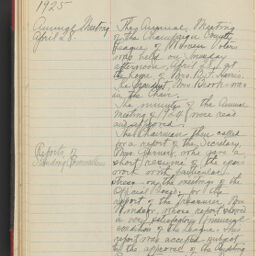 1925
Annual Meeting
April 21
The Annual Meeting
of the Champaign County
League of Women Voters
was held on Tuesday
afternoon, April 21, at
the home of Mrs.
The President, Mrs. Brooks was
in the Chair.
The minutes of the Annual
Meeting of 1924 were read
and approved.
The Chairman then called
for a report of the Secretary,
Mrs. who gave a
short resume of the year's
work with particular
stress on the meetings of the
Official Board, for the
report of the Treasurer, Mrs.
Windsor, whose report showed
a very satisfactory financial
condition of the League. This
report was accepted subject
to the approval of the Auditing
Reports of
Standing Committees